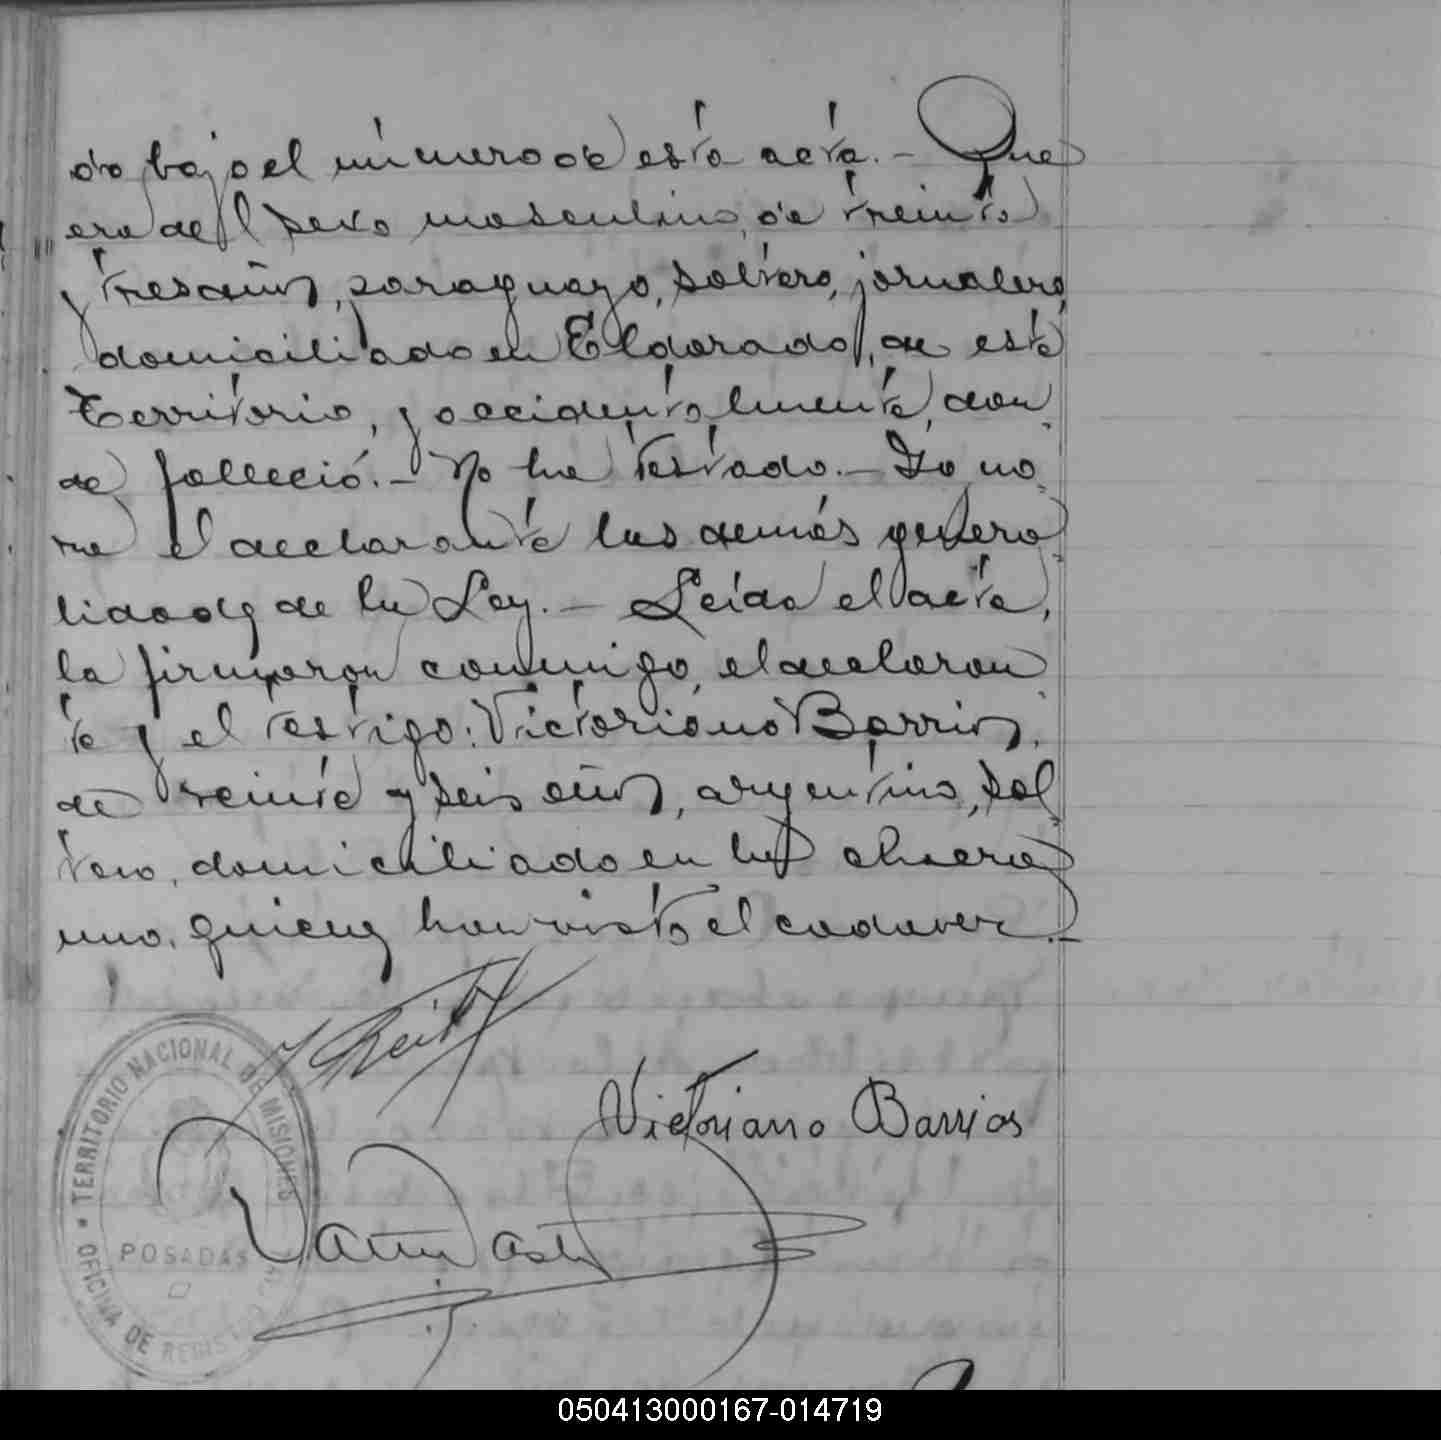 do bajo el número de ésta acta.- Que
era del sexo masculino, de treinta
y tres años, paraguayo, soltero, jornalero,
domiciliado en Eldorado, de este
Territorio, y accidentalmente, don
de falleció.- No ha testado.- Igno
ra el declarante las demás genera
lidades de la Ley.- Leída el acta,
la firmaron conmigo, el declaran
te y el testigo: Victoriano Barrios,
de treinta y seis años, argentino, sol
tero, domiciliado en la chacra
uno, quienes han visto el cadaver.-
Victoriano Barrios
TERRITORIO NACIONAL DE MISIONES
POSADAS
OFICINA DE REGISTRO
050413000167-014719